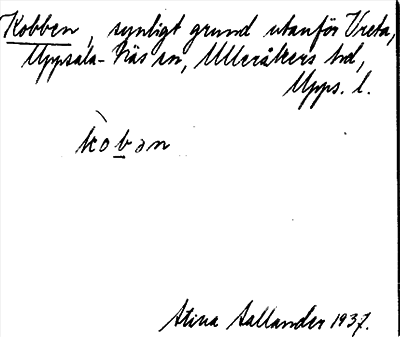 Kobben, synligt grund utanför Vreta,
Uppsala-Näs sn, Ulleråkers hd,
Upps. l.
kòbən
Stina Sallander 1937.